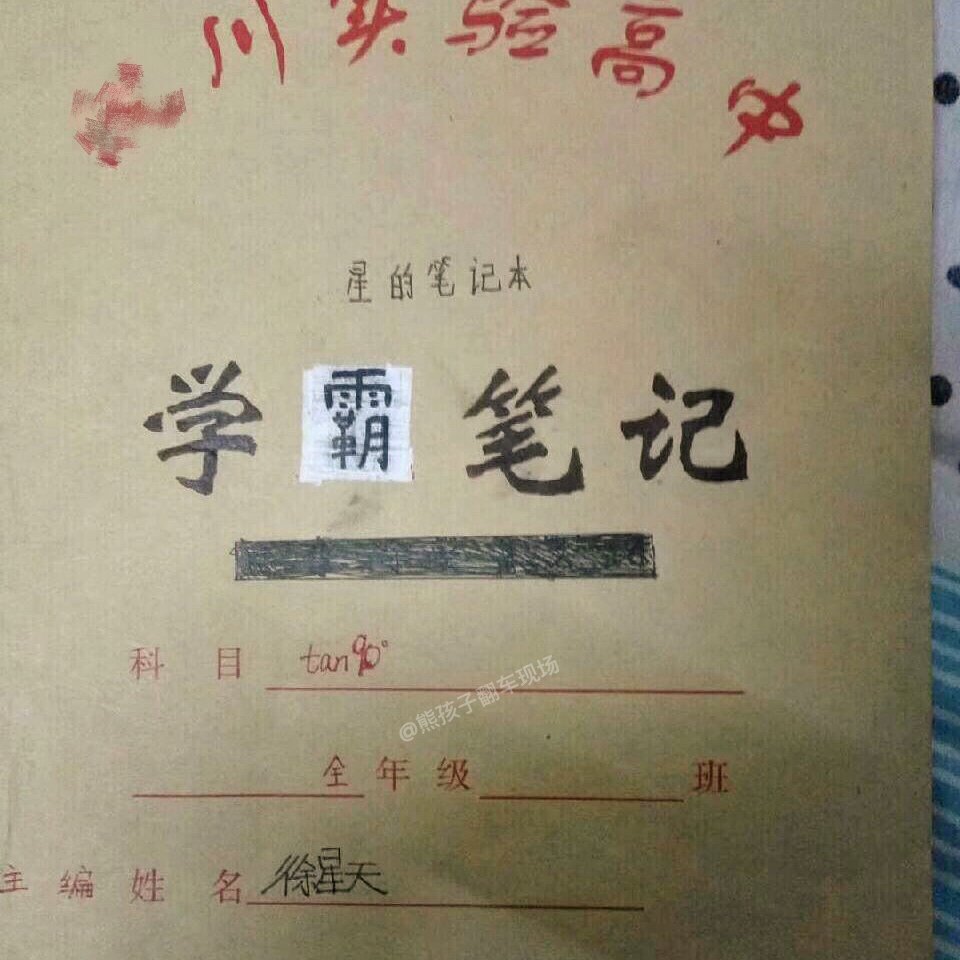 川实验高
星的笔记本
学霸笔记
科目 tan90°
@熊孩子翻车现场
全年级 班
主编姓名 徐星天